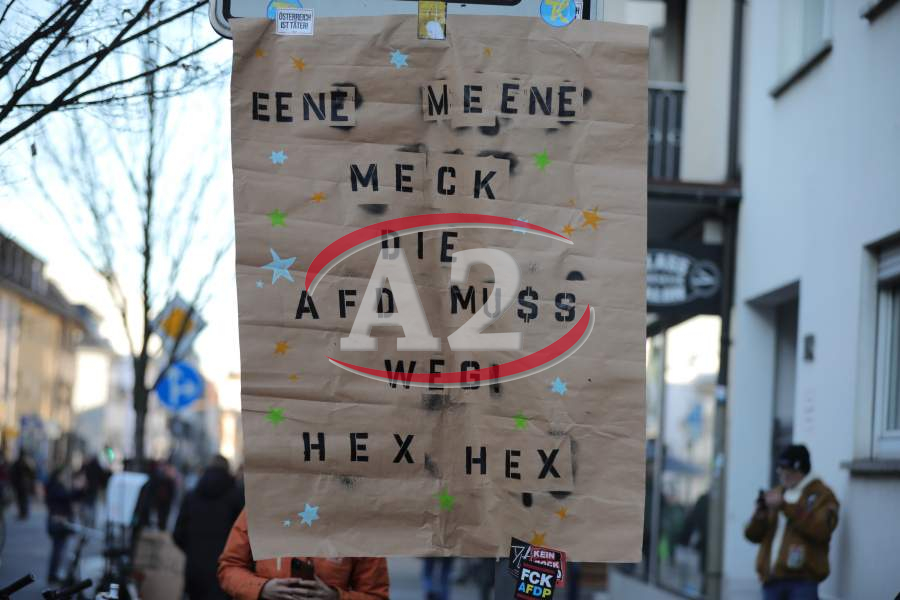 ÖSTERREICH
IST TÄTER!
EENE MEENE
MECK
DIE
AFD MU$S
WEG!
HEX HEX
A2
KEIN
FCK
AFDP